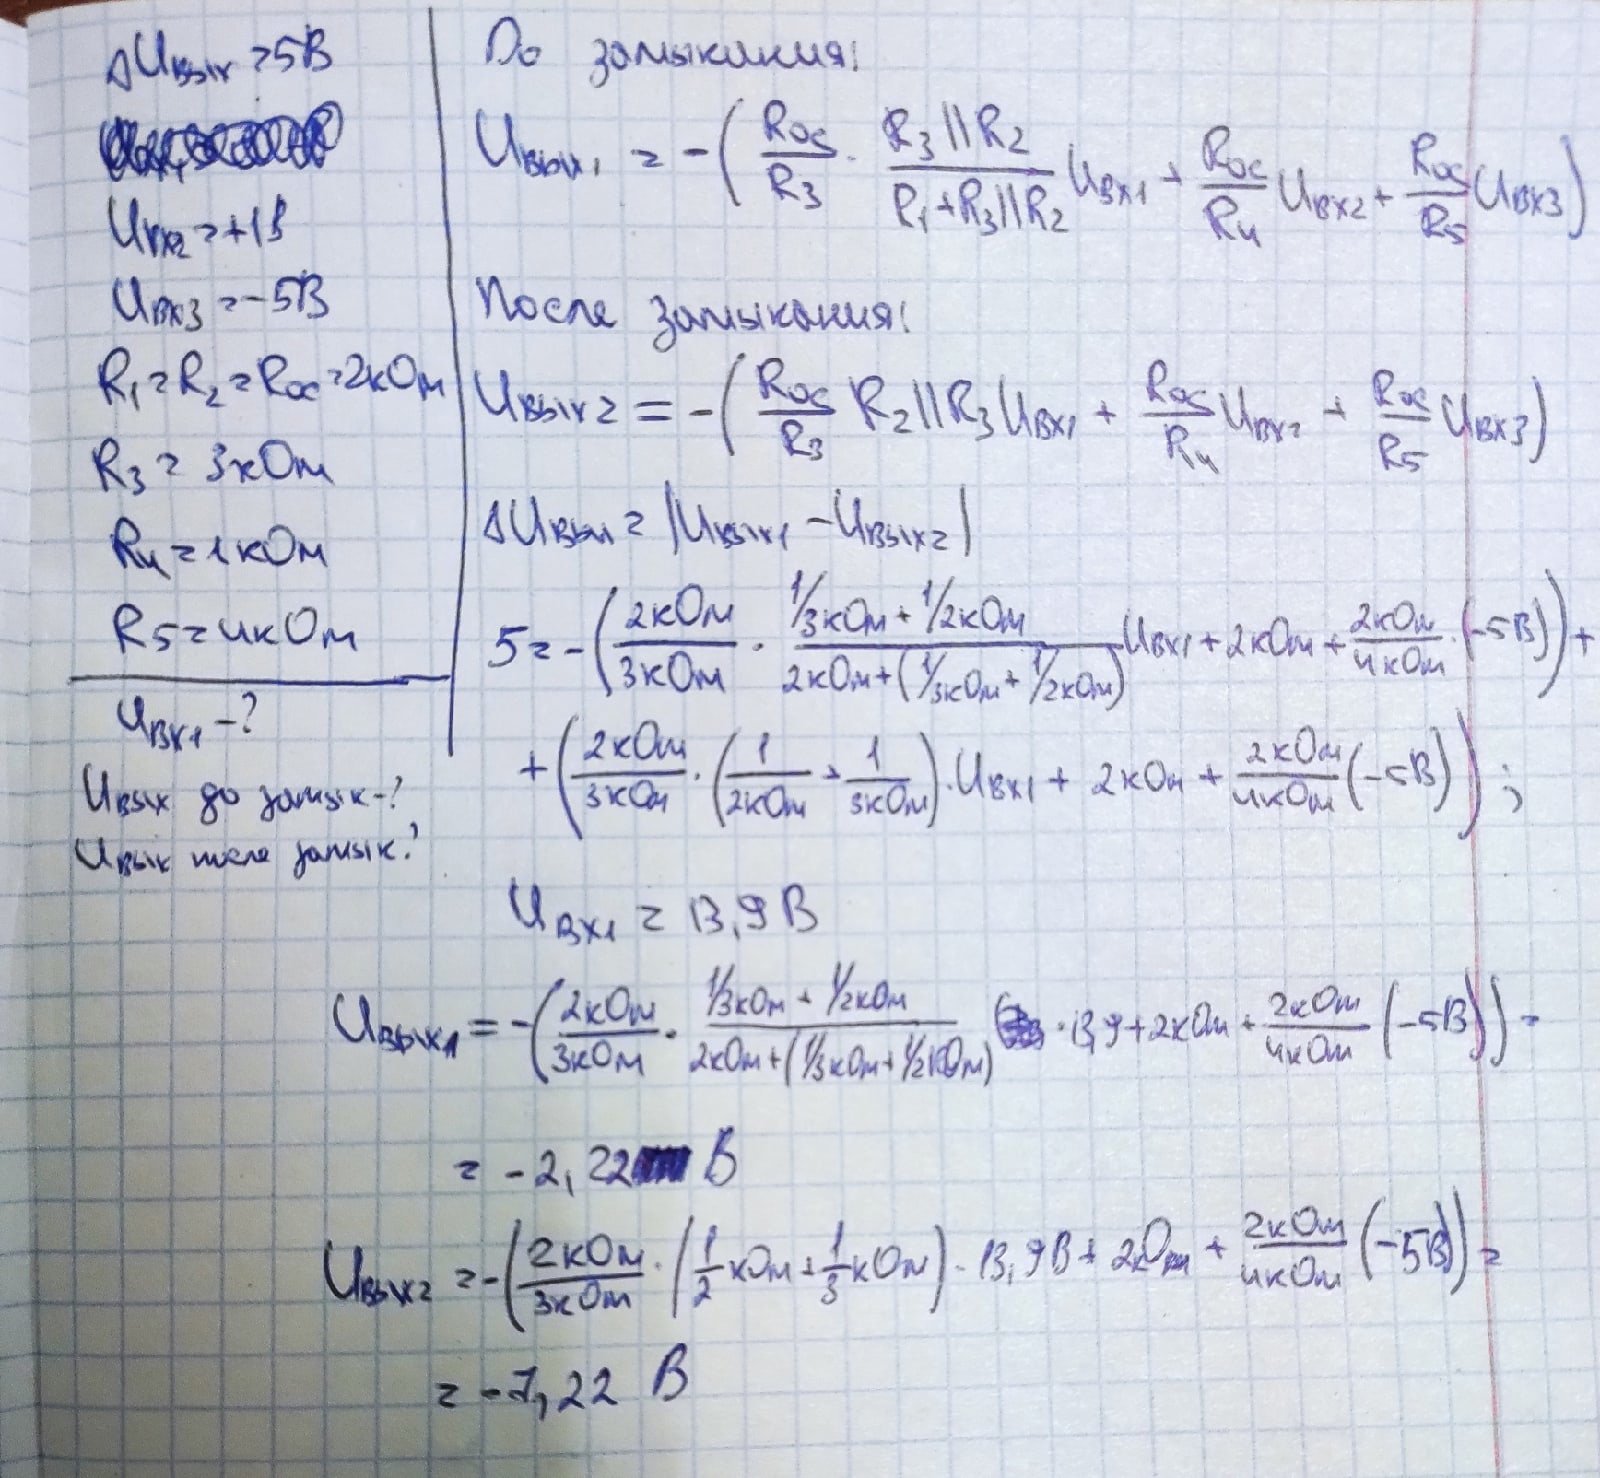 ΔUвых = 5В
Uвх2 = +1В
Uвх3 = -5В
R1 = R2 = Rос = 2кОм
R3 = 3кОм
R4 = 1кОм
R5 = 4кОм
Uвх1 - ?
Uвых до замык - ?
Uвых после замык ?
До замыкания:
Uвых1 = -(Rос/R3 · R3||R2/(R1+R3||R2) Uвх1 + Rос/R4 Uвх2 + Rос/R5 Uвх3)
После замыкания:
Uвых2 = -(Rос/R3 R2||R3 Uвх1 + Rос/R4 Uвх2 + Rос/R5 Uвх3)
ΔUвых = |Uвых1 - Uвых2|
5 = -(2кОм/3кОм · (1/3кОм + 1/2кОм)/(2кОм+(1/3кОм+1/2кОм)) Uвх1 + 2кОм + 2кОм/4кОм · (-5В)) +
+ (2кОм/3кОм · (1/2кОм + 1/3кОм) · Uвх1 + 2кОм + 2кОм/4кОм (-5В));
Uвх1 = 13,9 В
Uвых1 = -(2кОм/3кОм · (1/3кОм + 1/2кОм)/(2кОм+(1/3кОм+1/2кОм)) · 13,9 + 2кОм + 2кОм/4кОм (-5В)) =
= -2,22 В
Uвых2 = -(2кОм/3кОм · (1/2 кОм + 1/3 кОм) · 13,9В + 2кОм + 2кОм/4кОм (-5В)) =
= -7,22 В